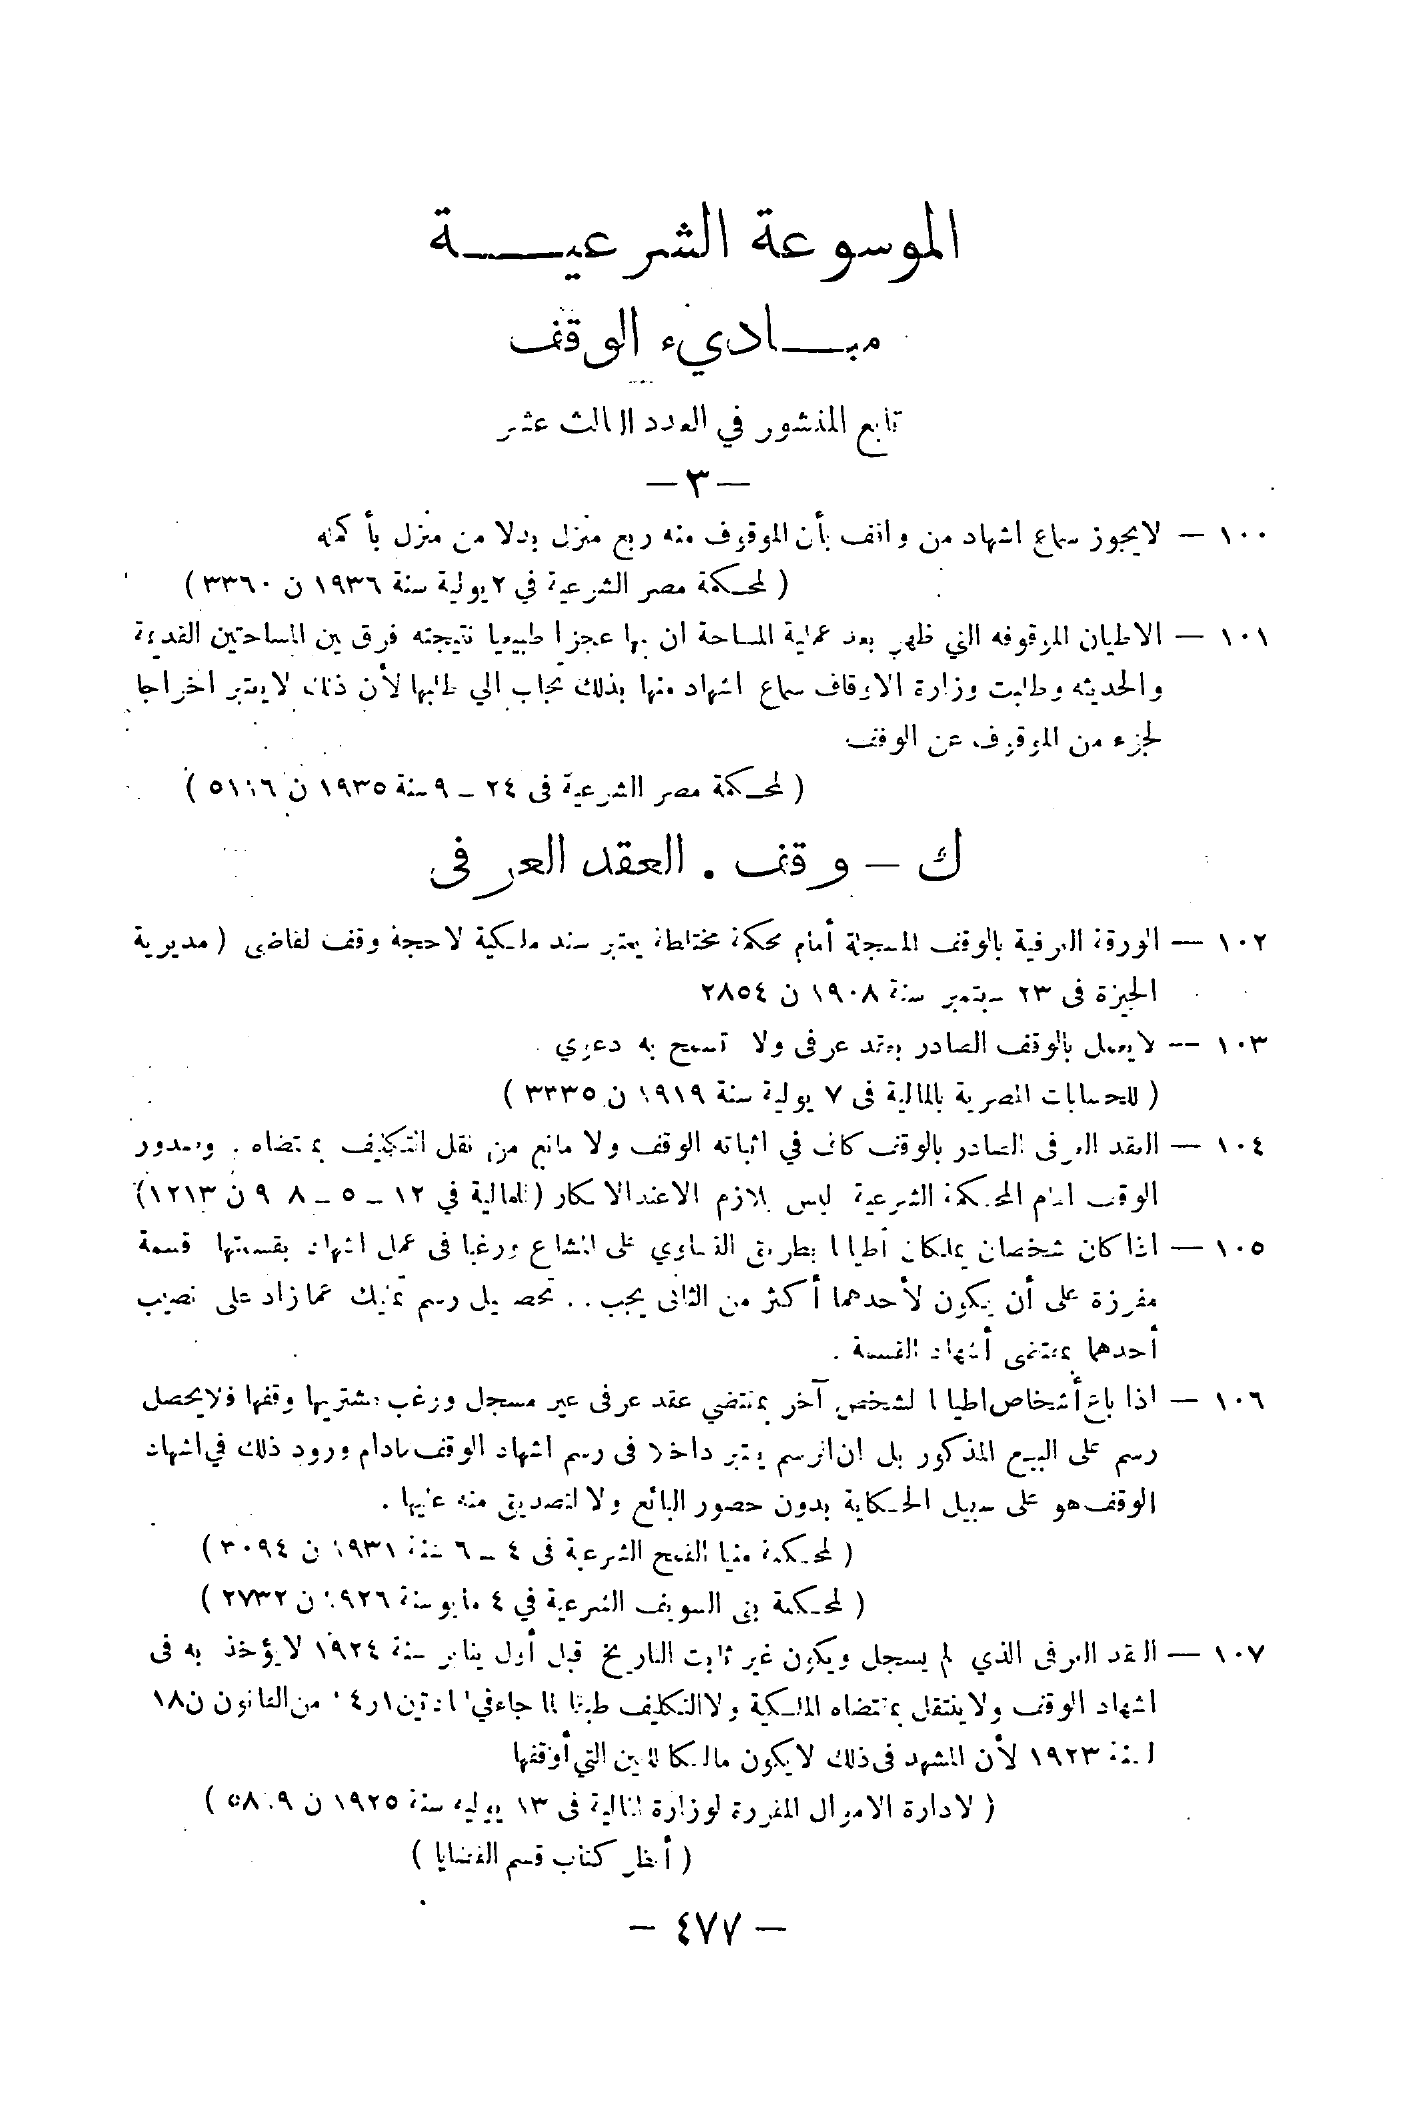 الموسوعة الشرعيـــة
مبـــاديء الوقف
تابع المنشور في العدد الثالث عشر
—٣—
١٠٠ — لايجوز سماع اشهاد من واقف بأن الموقوف منه ربع منزل بدلا من منزل بأكمله
( لمحكمة مصر الشرعية في ٢ يولية سنة ١٩٣٦ ن ٣٣٦٠ )
١٠١ — الاطيان الموقوفه التي ظهر بعد عملية المساحة ان بها عجزا طبيعيا نتيجته فرق بين المساحتين القديمة
والحديثه وطلبت وزارة الاوقاف سماع اشهاد منها بذلك تجاب الي طلبها لأن ذلك لايعتبر اخراجا
لجزء من الموقوف عن الوقف
( لمحكمة مصر الشرعية فى ٢٤ – ٩ سنة ١٩٣٥ ن )
ك — وقف . العقد العرفى
١٠٢ — الورقة العرفية بالوقف المسجلة أمام محكمة مختلطة يعتبر سند ملكية لاحجة وقف لقاضى ( مديرية
الجيزة فى ٢٣ سبتمبر سنة ١٩٠٨ ن ٢٨٥٤
١٠٣ — لايعمل بالوقف الصادر بعقد عرفى ولا تسمح به دعوي
( للحسابات المصرية بالمالية فى ٧ يولية سنة ١٩١٩ ن ٣٣٣٥ )
١٠٤ — العقد العرفى الصادر بالوقف كاف في اثباته الوقف ولا مانع من نقل التكليف بمقتضاه . وصدور
الوقف امام المحكمة الشرعية ليس بلازم الا عند الانكار ( للمالية في ١٢ – ٥ – ٨ ٩ ن ١٢١٣)
١٠٥ — اذا كان شخصان يملكان أطيانا بطريق التساوي على المشاع ورغبا فى عمل اشهاد بقسمتها قسمة
مفرزة على أن يكون لأحدهما أكثر من الثانى يجب .. تحصيل رسم تمليك عما زاد على نصيب
أحدهما بمقتضى أشهاد القسمة .
١٠٦ — اذا باع أشخاص اطيانا لشخص آخر بمقتضي عقد عرفى غير مسجل ورغب مشتريها وقفها فلا يحصل
رسم على البيع المذكور بل ان الرسم يعتبر داخلا فى رسم اشهاد الوقف مادام ورود ذلك في اشهاد
الوقف هو على سبيل الحكاية بدون حضور البائع ولا لتصديق منه عليها .
( لمحكمة منيا القمح الشرعية فى ٤ – ٦ سنة ١٩٣١ ن ٣٠٩٤ )
( لمحكمة بنى السويف الشرعية في ٤ مايو سنة ١٩٢٦ ن ٢٧٣٢ )
١٠٧ — العقد العرفى الذي لم يسجل ويكون غير ثابت التاريخ قبل أول يناير سنة ١٩٢٤ لا يؤخذ به فى
اشهاد الوقف ولا ينتقل بمقتضاه الملكية ولا التكليف طبقا لما جاء في من القانون ن ١٨
لسنة ١٩٢٣ لأن المشهد فى ذلك لا يكون مالكا للعين التي أوقفها
( لادارة الاموال المقررة لوزارة المالية فى ١٣ يوليه سنة ١٩٢٥ ن )
( أنظر كتاب قسم القضايا )
— ٤٧٧ —